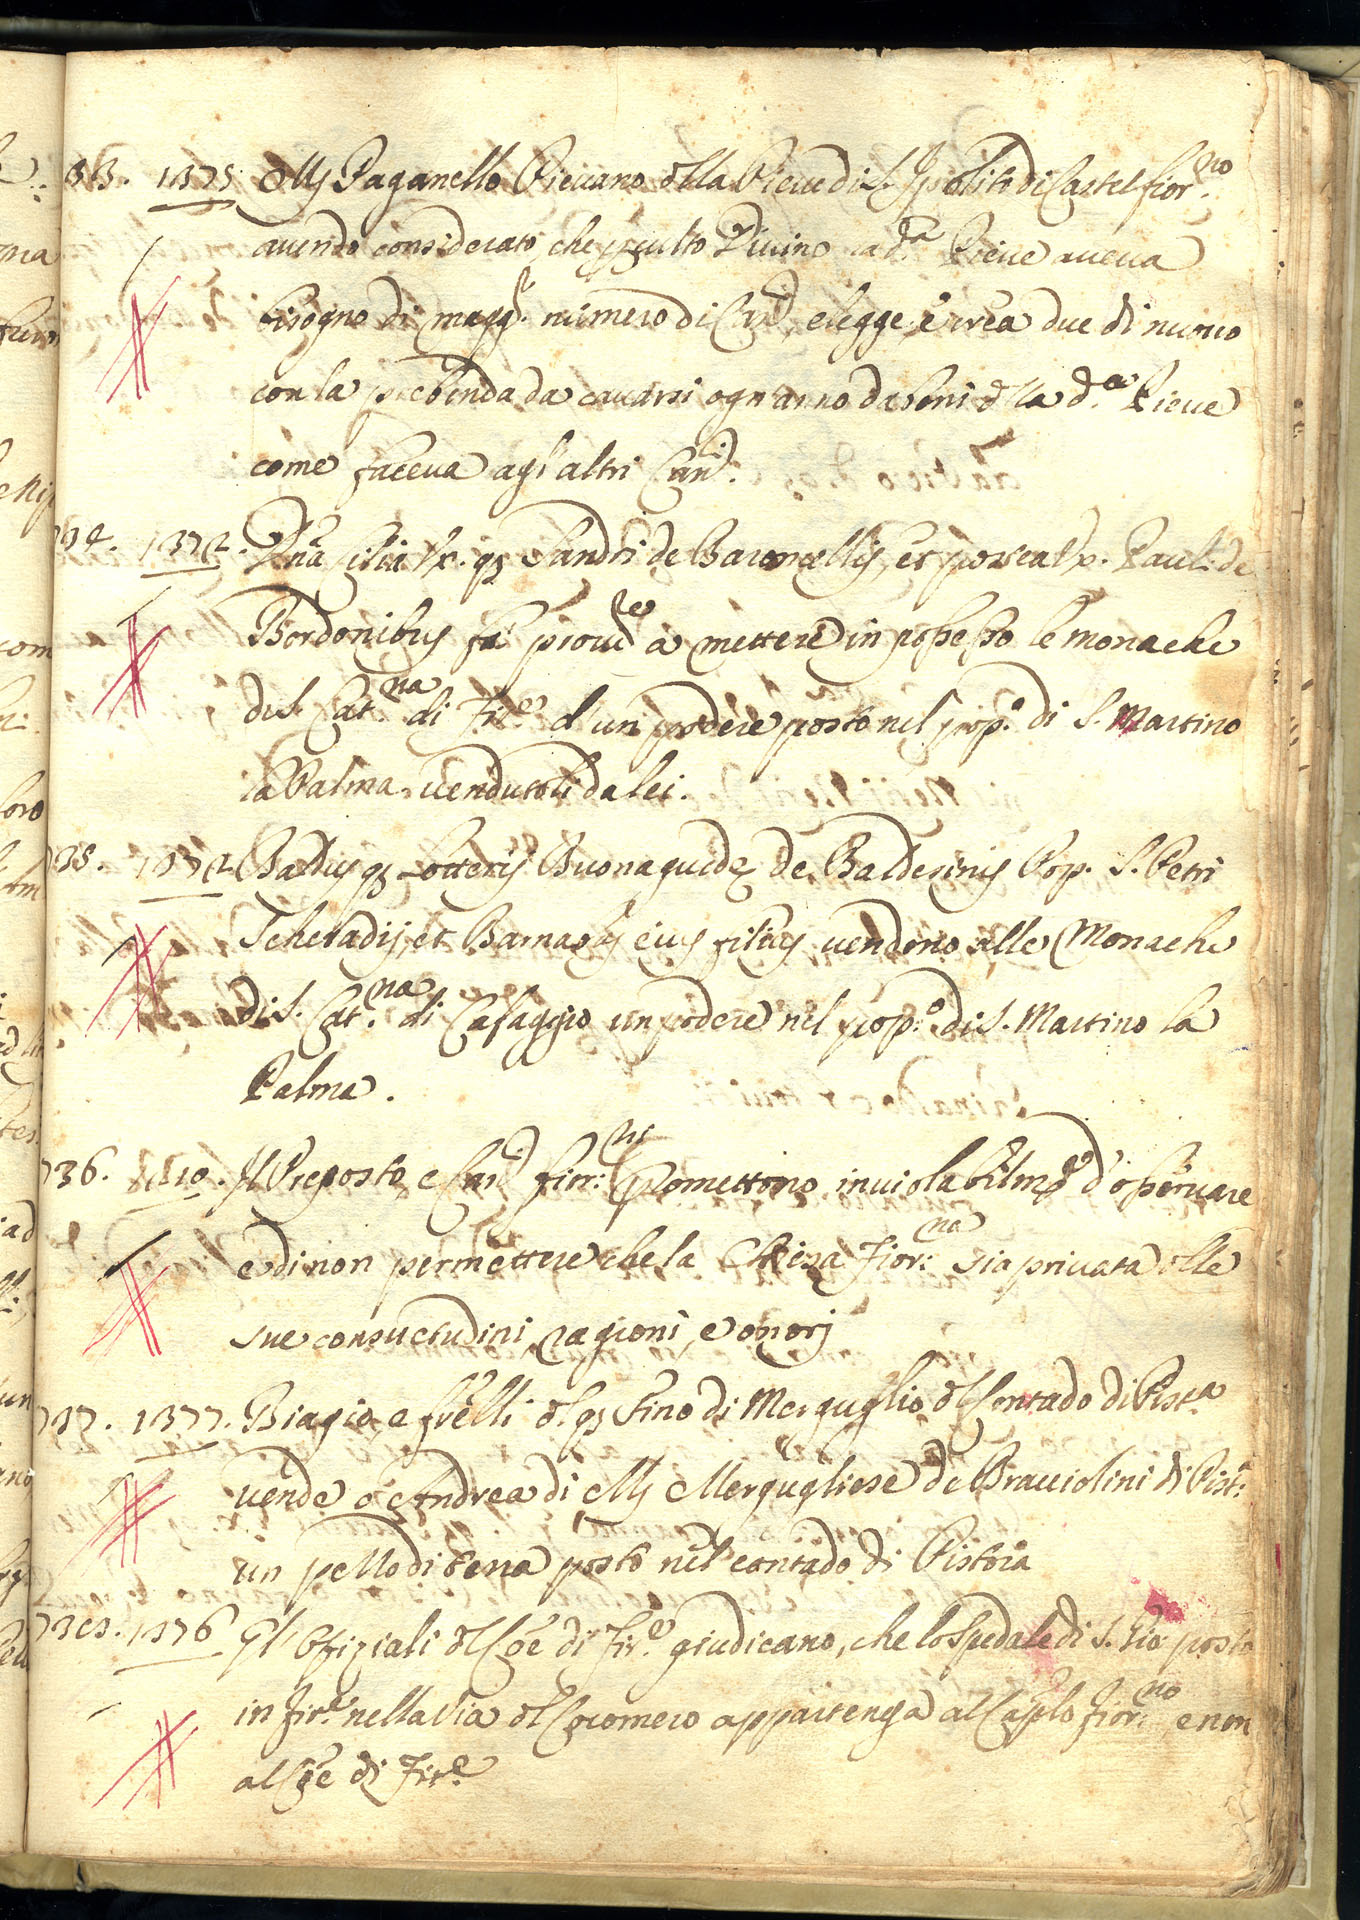 33. 1375 Mſ Paganello Pievano dlla Pieve di S. Ipolito di Castel fior:no
avendo considerato, che p culto Divino la d.a Pieve aveva
bisogno di magg.r numero di Can.i elegge, e crea due di nuovo
con la prebenda da cavarsi ogn'anno da beni dlla d.a Pieve
come faceva agl'altri Can.i
734. 1372. Dna filia qq Sandri de Baroncellis, et
Bordonibus fa proc.re a mettere in possesso le monache
di S. Cat.na di Fir.e d'un podere posto nel pop.o di S. Martino
la Palma vendutoli da lei.
735. 1372 Baldus qq Lotterij Buonaguide de Balderinis Pop. S. Petri
Scheradij, et Barnabas eius filius vendono alle Monache
di S. Cat.na di Cafaggio un podere nel pop.o di S. Martino la
Palma.
736. Il Preposto, e Can.i fior:ni promettono inviolabilm.e d'osservare
e di non permettere che la Chiesa fior:na sia privata dlle
sue consuetudini, ragioni, e onorj
737. 1377. Biagio, e frelli dl qq Fino di Merguglio dl Contado di Pist.a
vende a Andrea di Mſ Mergugliese de Bracciolini di Pist.a
un pezzo di terra posto nel contado di Pistoia
738. 1376 Gl'Ofiziali dl Coe di Fir.e giudicano, che lo Spedale di S. Gio: posto
in Fir.e nella Via dl Cocomero appartenga al Caplo fior:no, e non
al Coe di Fir.e